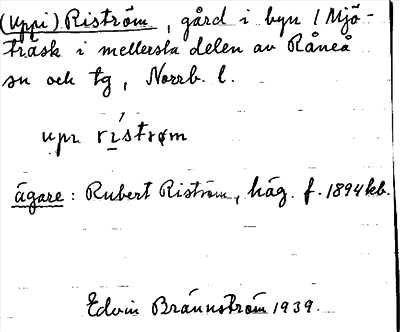 (Uppi) Riström, gård i byn / Mjö-
träsk i mellersta delen av Råneå
sn och tg, Norrb. l.
upr. ríström
ägare: Rubert Riström, häg. f. 1894 kb.
Edvin Brännström 1939.